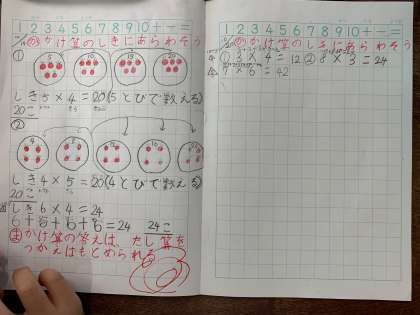 1 2 3 4 5 6 7 8 9 10 + − =
かけ算のしきにあらわそう
①
しき 5 × 4 = 20 (5とびで数える)
20こ
②
しき 4 × 5 = 20 (4とびで数える)
20こ
しき 6 × 4 = 24
6 + 6 + 6 + 6 = 24 24こ
ま かけ算の答えは、たし算を
つかえばもとめられる。
1 2 3 4 5 6 7 8 9 10 + − =
かけ算のしきにあらわそう
① 3 × 4 = 12 ② 8 × 3 = 24
7 × 6 = 42